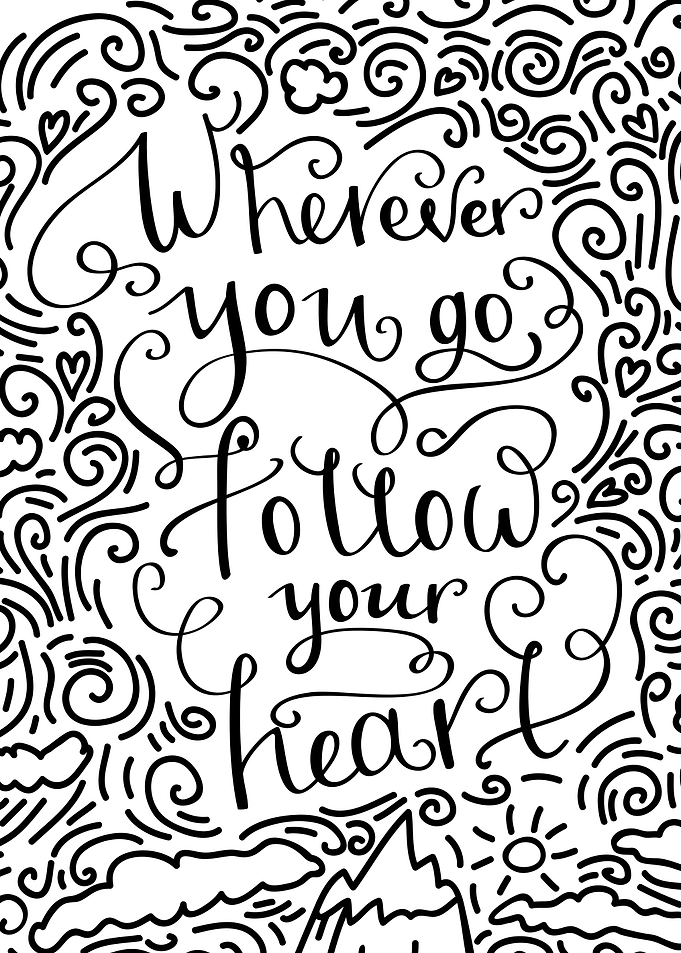 Wherever
you go
follow
your
heart